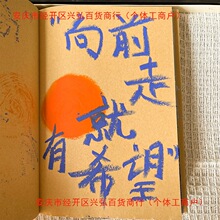 安庆市经开区兴弘百货商行（个体工商户）
"向前
走
就
有
希望"
安庆市经开区兴弘百货商行（个体工商户）